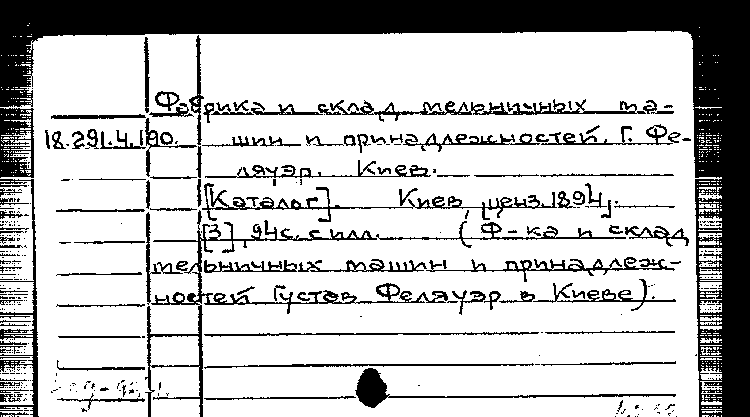 Фабрика и склад мельничных ма-
18.291.4.190. шин и принадлежностей. Г. Фе-
ляуэр. Киев.
[Каталог]. Киев, [ценз. 1894].
[3], 94с. с илл. (Ф-ка и склад
мельничных машин и принадлеж-
ностей Густав Феляуэр в Киеве).